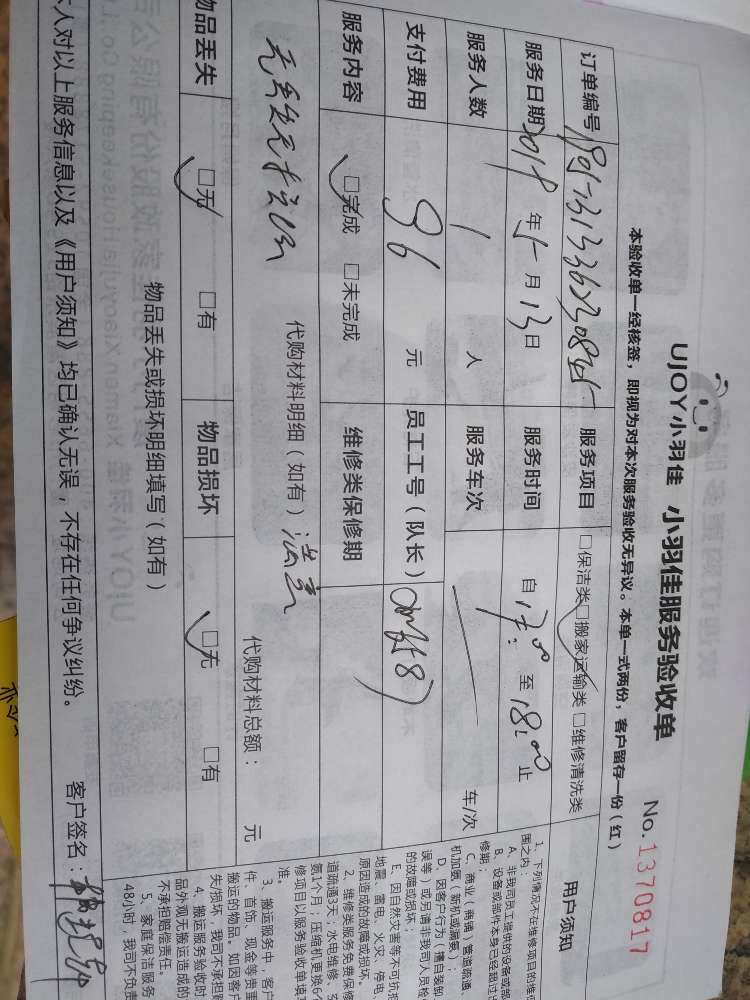 UJOY小羽佳 小羽佳服务验收单
No.1370817
本验收单一经核签，即视为对本次服务验收无异议。本单一式两份，客户留存一份（红）
订单编号
服务项目 □保洁类□搬家运输类 □维修清洗类
服务日期 2018年5月13日
服务时间 自17:00至18:00止
服务人数 1 人
服务车次 车/次
支付费用 96 元
员工工号（队长）
服务内容 □完成 □未完成
维修类保修期
代购材料明细（如有）
代购材料总额： 元
物品丢失 □无 □有
物品损坏 □无 □有
物品丢失或损坏明细填写（如有）
本人对以上服务信息以及《用户须知》均已确认无误，不存在任何争议纠纷。
客户签名：
用户须知
1、下列情况不在维修项目的维保
围之内：
A、非我司员工提供的设备或部
B、设备或部件本身已经超过
修期；
C、商业（商铺、管道疏通、
机加氨（新机或漏氨）；
D、因客户行为（擅自装卸
误等）或后请非我司人员检
的故障或损坏；
E、因自然灾害等不可抗拒
地震、雷电、火灾、停电
原因造成的故障或损坏。
2、维修类服务免费保修
道疏通3天；水电维修、安
氨1个月；压缩机更换6个
修项目以服务验收单填写
准。
3、搬运服务中，客户
件、首饰、现金等贵重
搬运的物品。如因客户
失/损坏，我司不承担赔
4、搬运服务验收时
品外观无搬运造成的
不承担赔偿责任。
5、家庭保洁服务
48小时，我司不负责